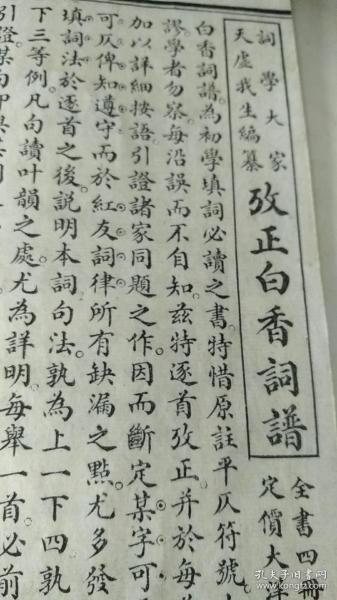 詞學大家
天虛我生編纂
攷正白香詞譜
全書四冊
定價大
白香詞譜。為初學填詞必讀之書。特惜原註平仄符號。
謬。學者勿察。每沿誤而不自知。茲特逐首攷正。并於每
加以詳細按語。引證諸家同題之作。因而斷定某字可
可仄。俾知遵守。而於紅友詞律所有缺漏之點。尤多發
填詞法於逐首之後。說明本詞句法。孰為上一下四。孰
下三等例。凡句讀叶韻之處。尤為詳明。每舉一首。必前
引證某句
孔夫子旧书网